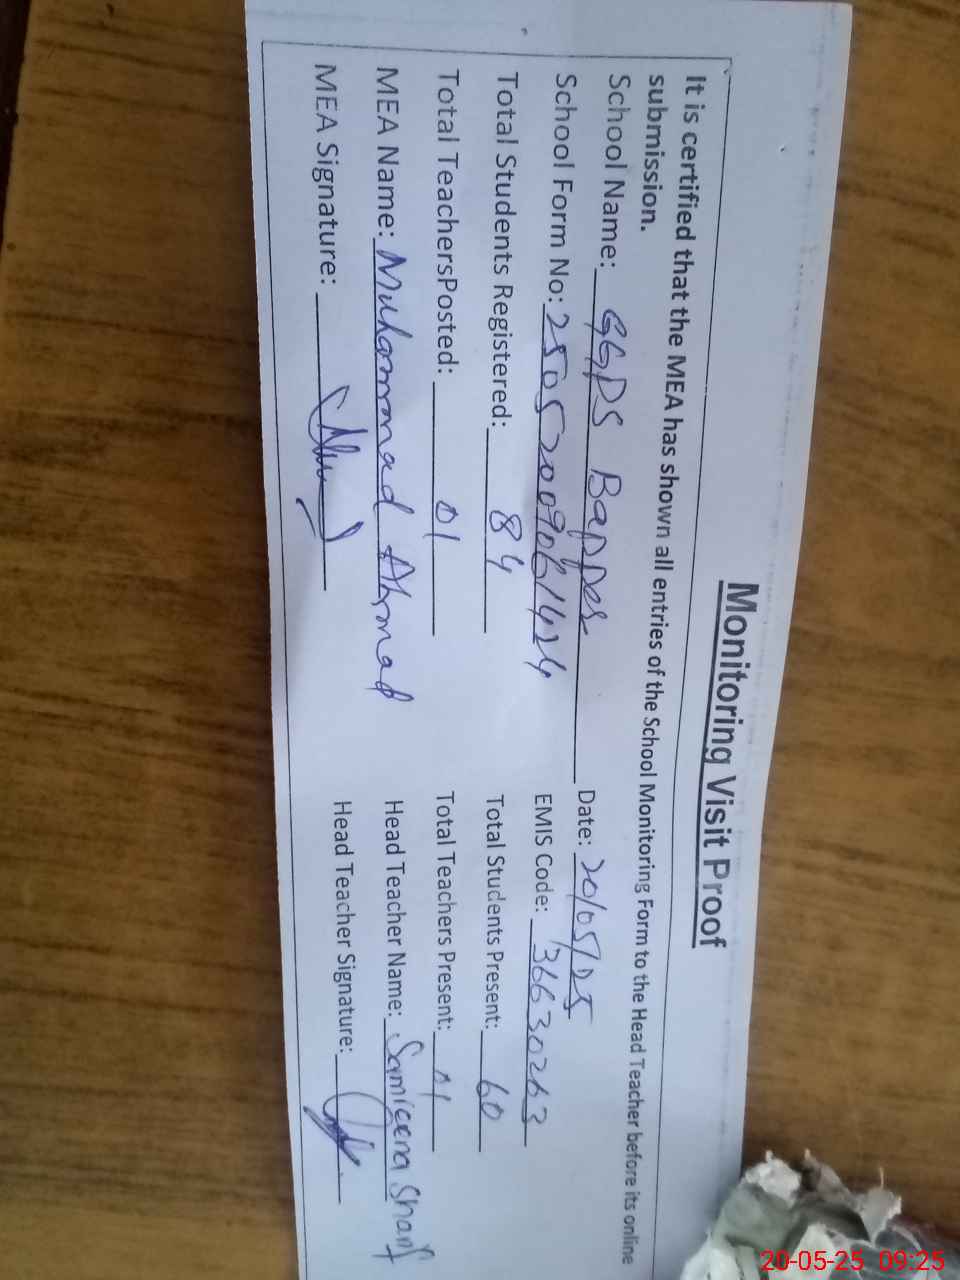 Monitoring Visit Proof
It is certified that the MEA has shown all entries of the School Monitoring Form to the Head Teacher before its online
submission.
School Name: GGPS Bapper Date: 20/05/25
School Form No: 25052009061424 EMIS Code: 36630263
Total Students Registered: 84 Total Students Present: 60
Total TeachersPosted: 01 Total Teachers Present: 01
MEA Name: Muhammad Ahmad Head Teacher Name: Sameena Sharif
MEA Signature: Head Teacher Signature:
20-05-25 09:25